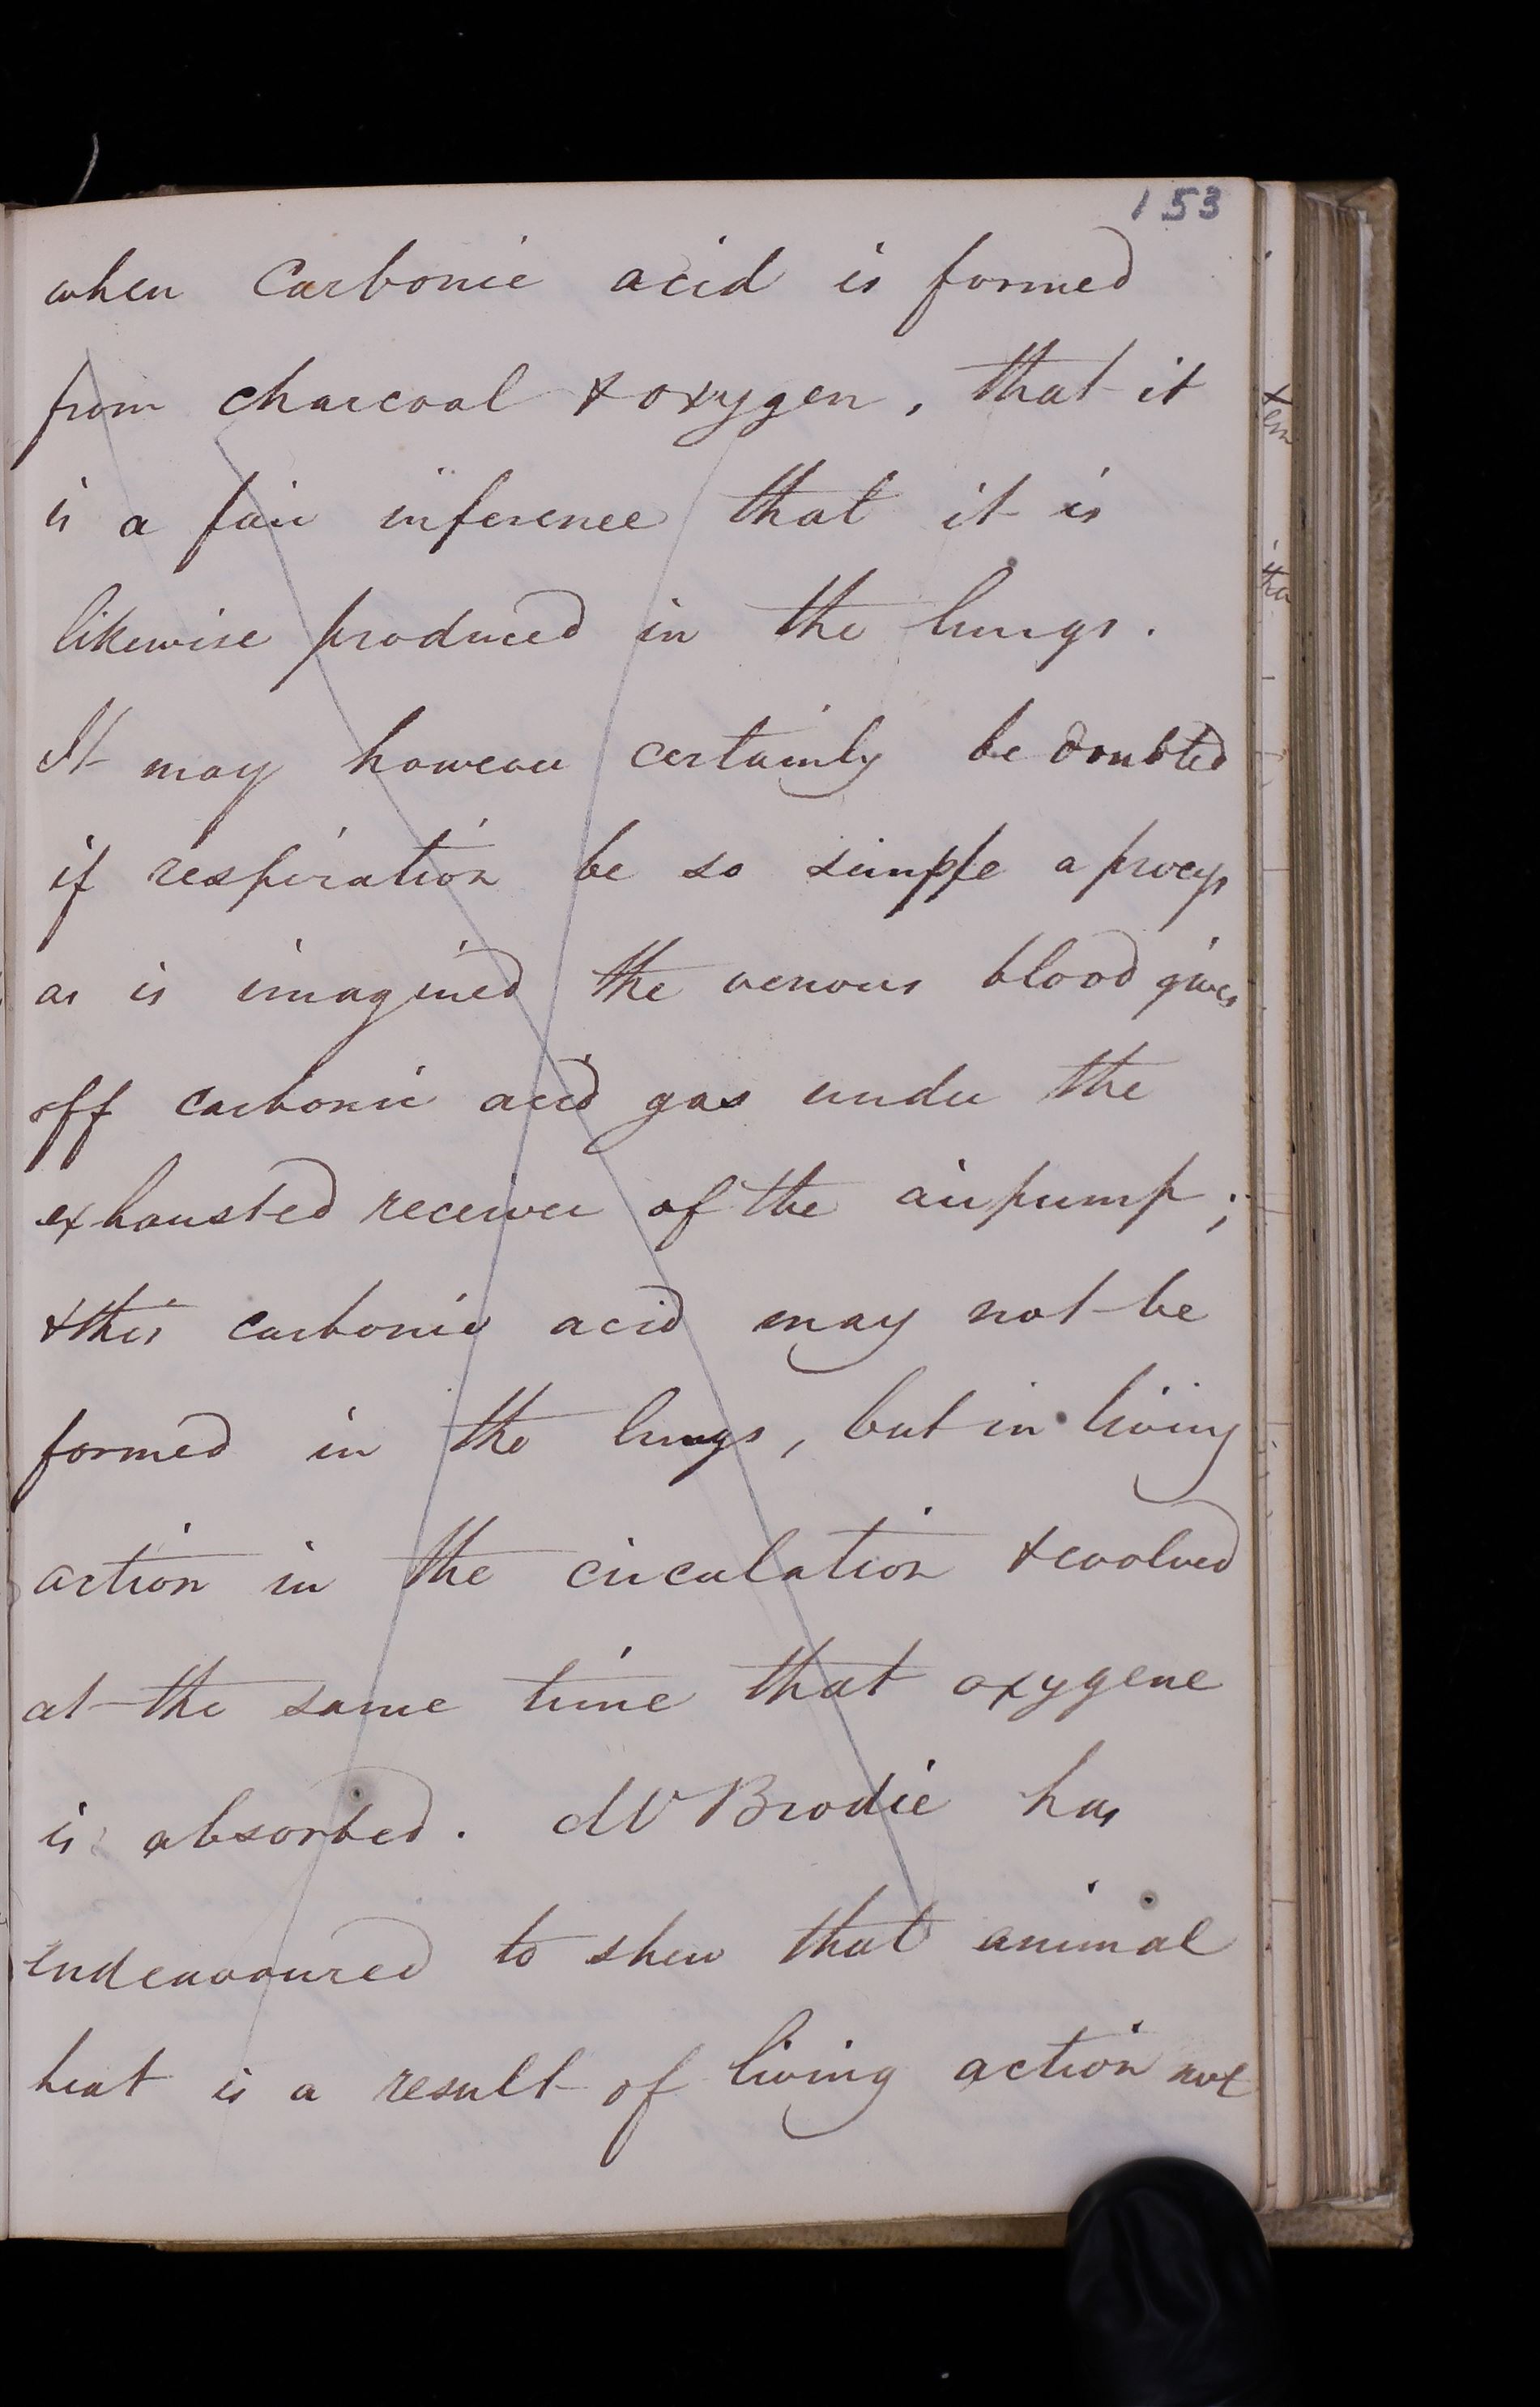 153
when Carbonic acid is formed
from charcoal & oxygen, that it
is a fair inference that it is
likewise produced in the lungs.
It may however certainly be doubted
if respiration be so simple a process
as is imagined the venous blood gives
off carbonic acid gas under the
exhausted receiver of the airpump;
& this carbonic acid may not be
formed in the lungs, but in living
action in the circulation & evolved
at the same time that oxygene
is absorbed. Mr Brodie has
endeavoured to shew that animal
heat is a result of living action not